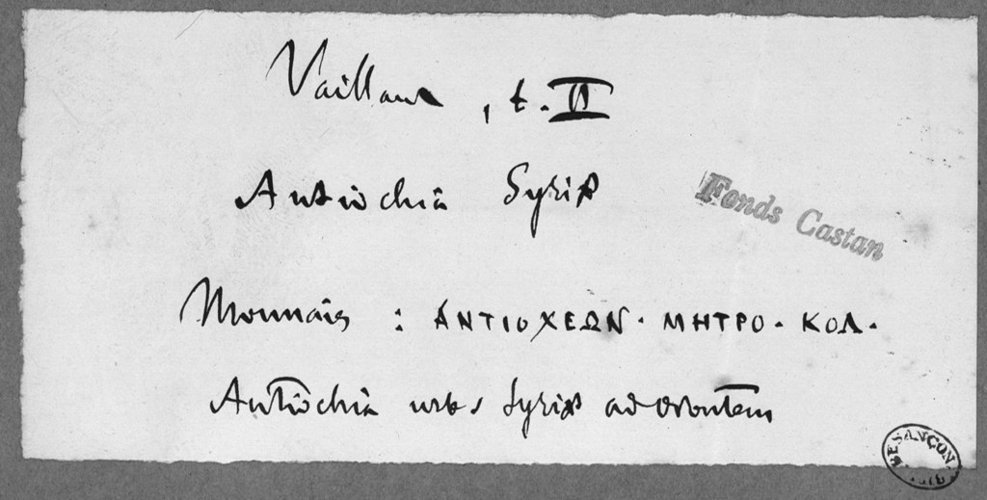 Vaillant, t. II
Antiochia Syriæ
Fonds Castan
Monnaies : ΑΝΤΙΟΧΕΩΝ · ΜΗΤΡΟ · ΚΟΛ ·
Antiochia urbs Syriæ ad Orontem
BESANÇON